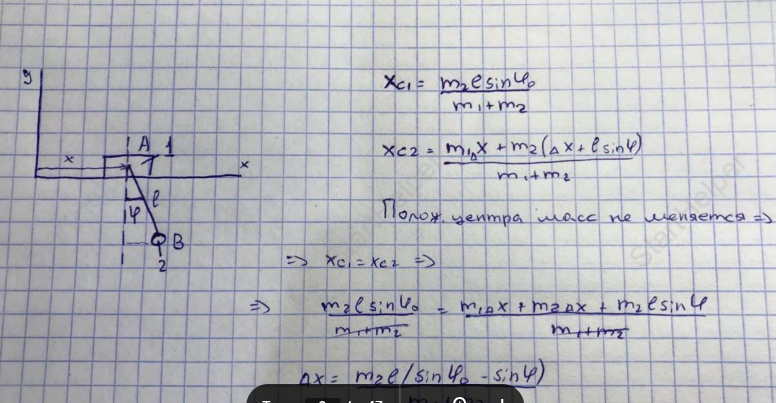 y
x
A 1
x
φ
l
B
2
xc1 = m2 l sin φ0 / m1 + m2
xc2 = m1 Δx + m2 (Δx + l sin φ) / m1 + m2
Полож. центра масс не меняется =>
=> xc1 = xc2 =>
=> m2 l sin φ0 / m1 + m2 = m1 Δx + m2 Δx + m2 l sin φ / m1 + m2
Δx = m2 l (sin φ0 - sin φ)